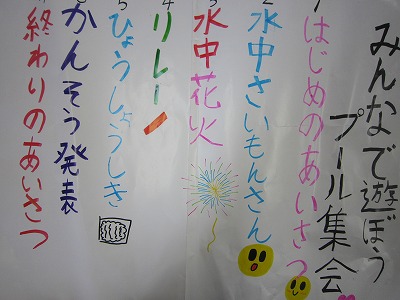 みんなで遊ぼう
プール集会
はじめのあいさつ
2 水中さいもんさん
3 水中花火
4 リレー
5 ひょうしょうしき
かんそう発表
終わりのあいさつ